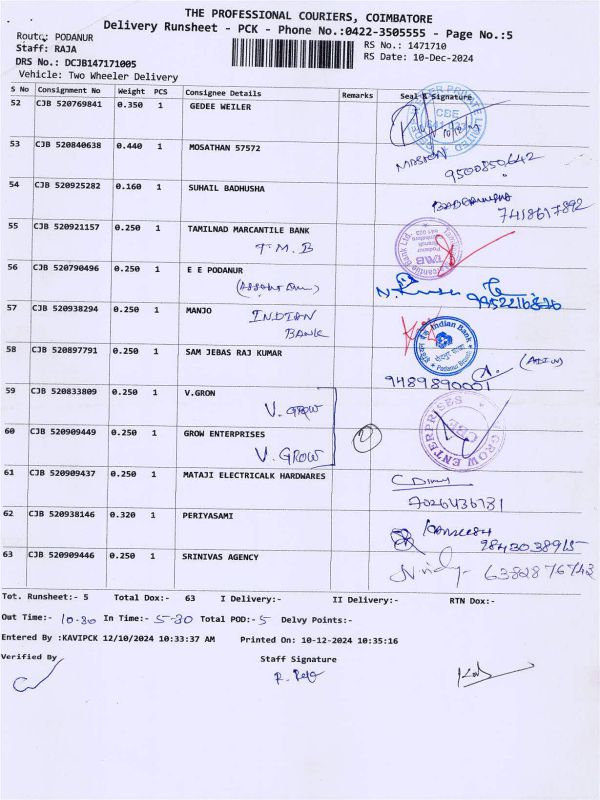 THE PROFESSIONAL COURIERS, COIMBATORE
Delivery Runsheet - PCK - Phone No.:0422-3505555 - Page No.:5
Route: PODANUR
RS No.: 1471710
Staff: RAJA
RS Date: 10-Dec-2024
DRS No.: DCJB147171005
Vehicle: Two Wheeler Delivery
S No Consignment No Weight PCS Consignee Details Remarks Seal & Signature
52 CJB 520769841 0.350 1 GEDEE WEILER
CBE
53 CJB 520840638 0.440 1 MOSATHAN 57572
9500850642
54 CJB 520925282 0.160 1 SUHAIL BADHUSHA
7418617892
55 CJB 520921157 0.250 1 TAMILNAD MARCANTILE BANK
T.M.B
56 CJB 520790496 0.250 1 E E PODANUR
57 CJB 520938294 0.250 1 MANJO INDIAN
BANK
Indian Bank
58 CJB 520897791 0.250 1 SAM JEBAS RAJ KUMAR
9489890001
59 CJB 520833809 0.250 1 V.GRON
V. GROW
60 CJB 520909449 0.250 1 GROW ENTERPRISES
V. GROW
GROW ENTERPRISES
CBE
61 CJB 520909437 0.250 1 MATAJI ELECTRICALK HARDWARES
7026436731
62 CJB 520938146 0.320 1 PERIYASAMI
9843038915
63 CJB 520909446 0.250 1 SRINIVAS AGENCY
6382876743
Tot. Runsheet:- 5 Total Dox:- 63 I Delivery:- II Delivery:- RTN Dox:-
Out Time:- 10-30 In Time:- 5-30 Total POD:- 5 Delvy Points:-
Entered By :KAVIPCK 12/10/2024 10:33:37 AM Printed On: 10-12-2024 10:35:16
Verified By Staff Signature
R. Raja